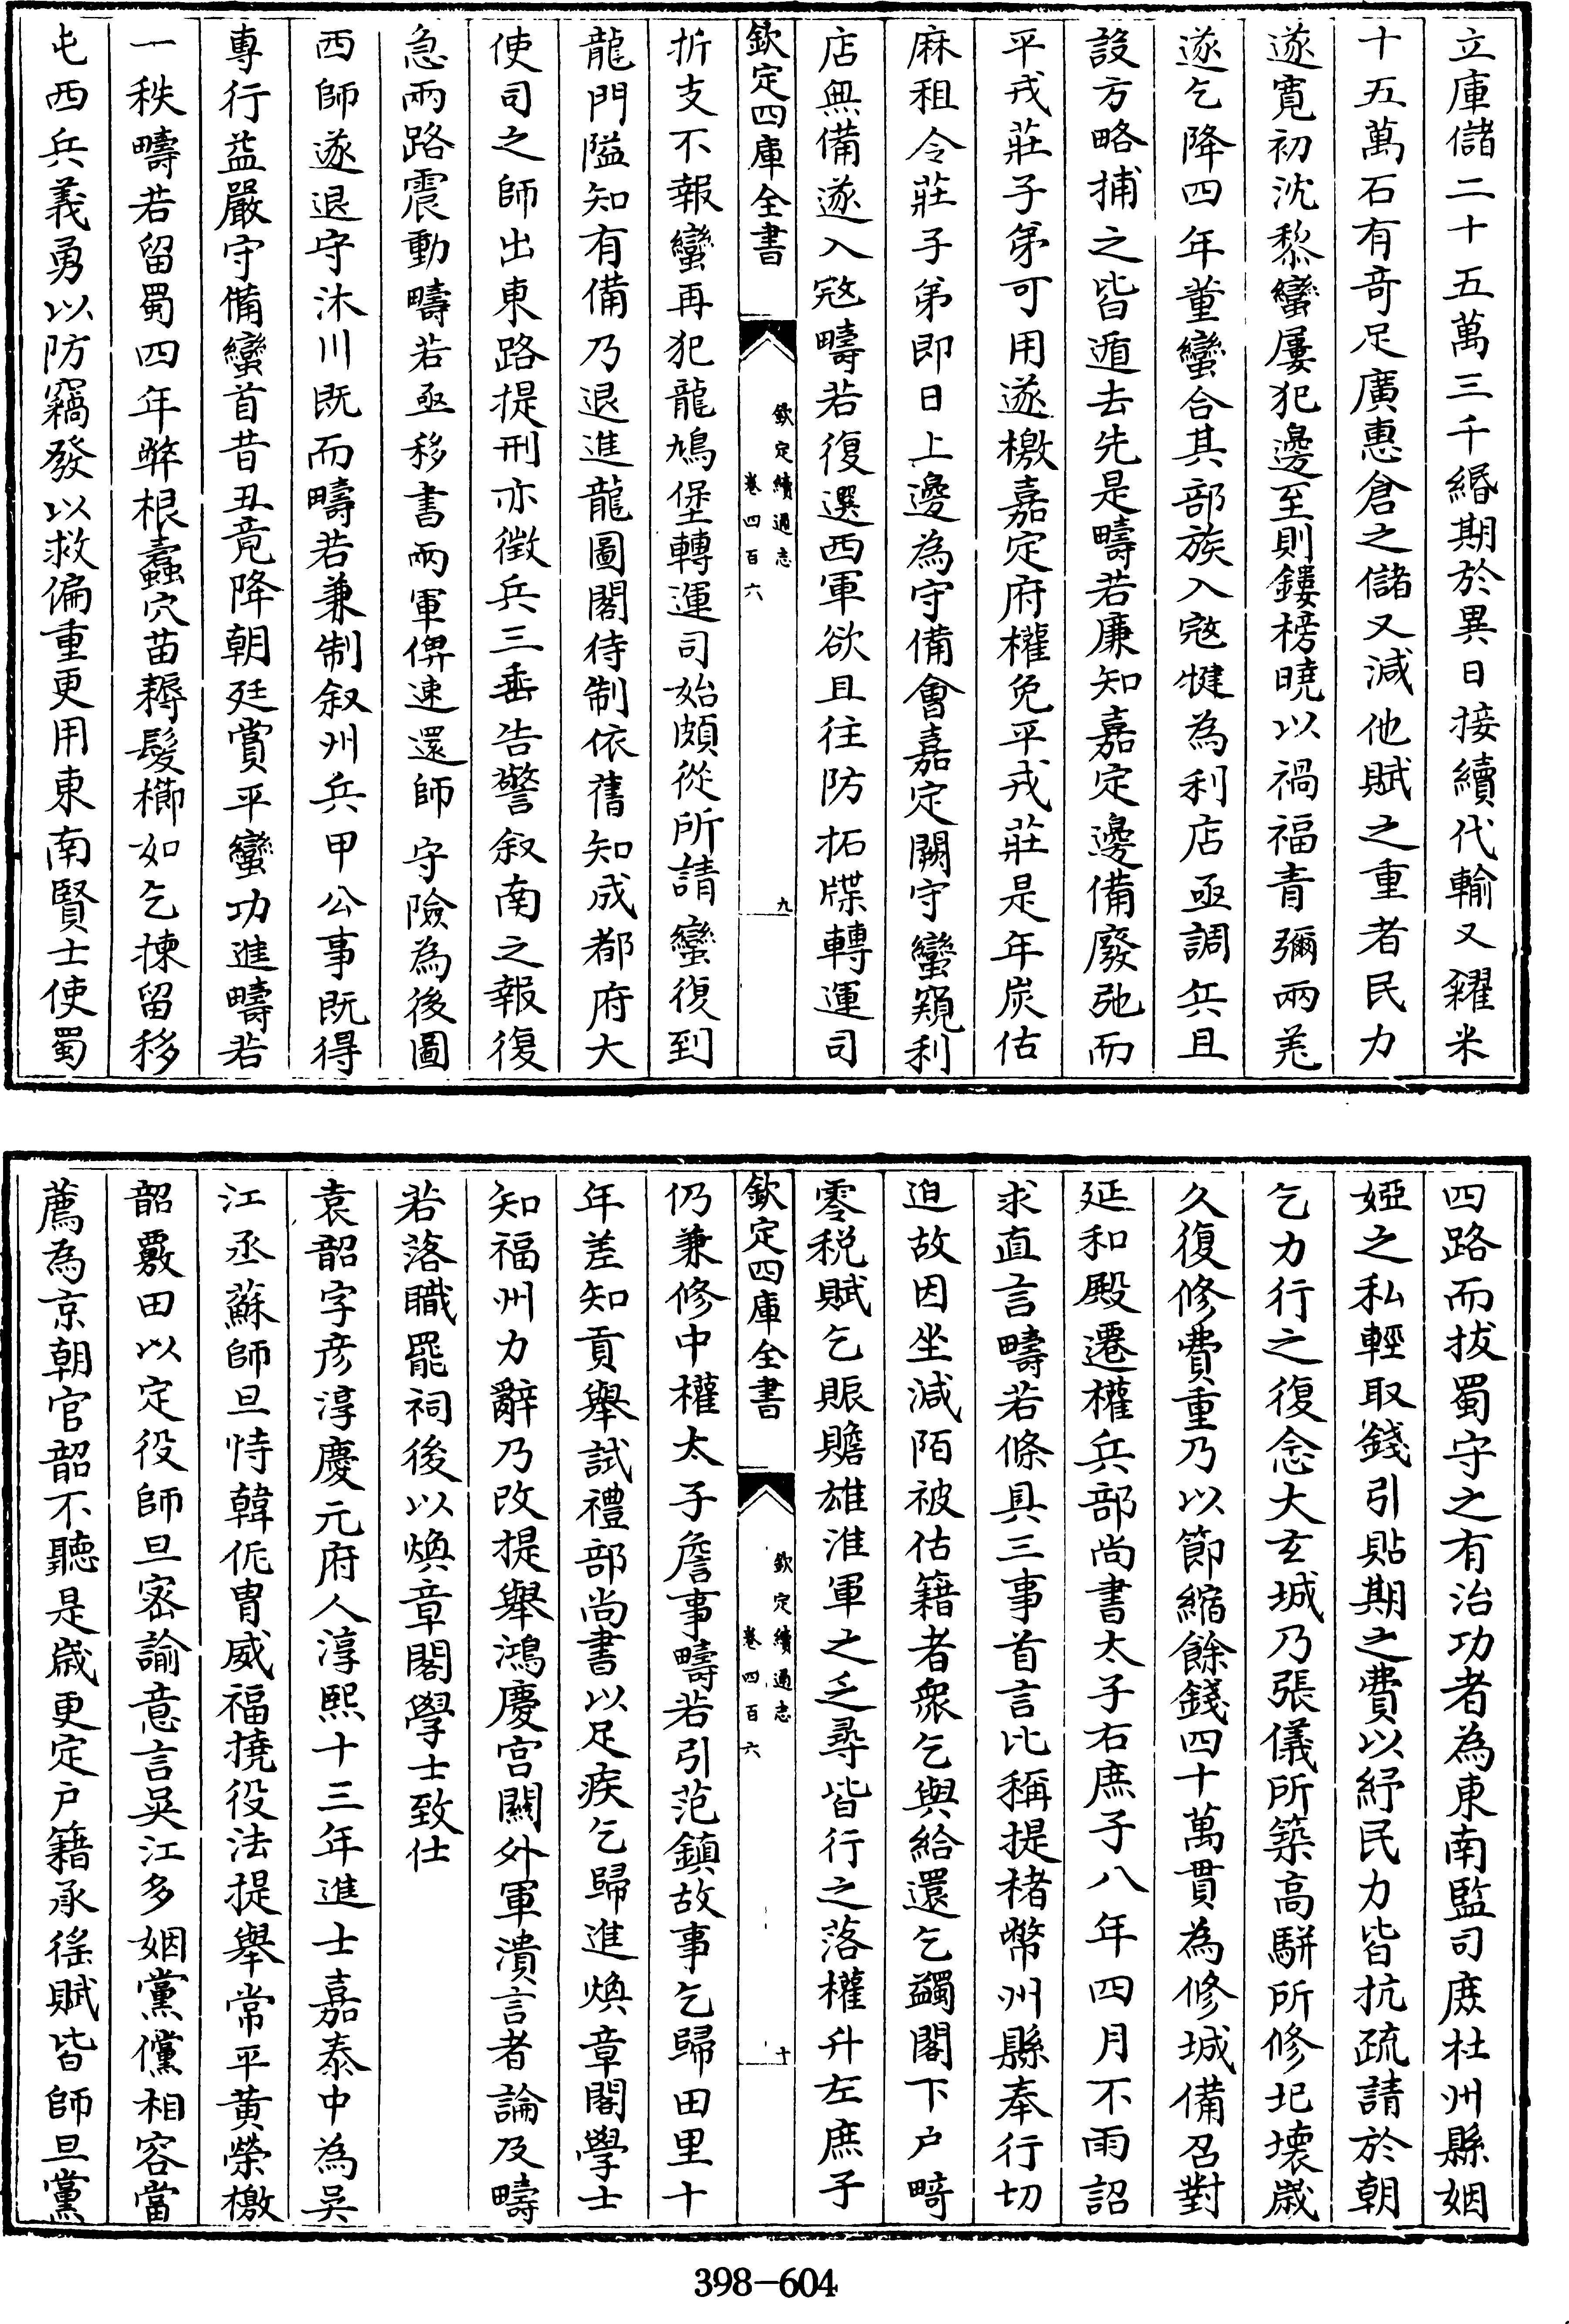 立庫儲二十五萬三千緡期於異日接續代輸又糴米
十五萬石有奇足廣惠倉之儲又減他賦之重者民力
遂寛初沈黎蠻屢犯邊至則鏤榜曉以禍福青彌兩羌
遂乞降四年董蠻合其部族入宼犍為利店亟調兵且
設方略捕之皆遁去先是疇若廉知嘉定邊備廢弛而
平戎莊子弟可用遂檄嘉定府權免平戎莊是年炭估
麻租令莊子弟即日上邊為守備會嘉定闕守蠻窺利
店無備遂入宼疇若復選西軍欲且往防拓牒轉運司
欽定四庫全書
欽定續通志
卷四百六
九
折支不報蠻再犯龍鳩堡轉運司始頗從所請蠻復到
龍門隘知有備乃退進龍圖閣待制依舊知成都府大
使司之師出東路提刑亦徵兵三垂告警叙南之報復
急兩路震動疇若亟移書兩軍俾速還師守險為後圖
西師遂退守沐川既而疇若兼制叙州兵甲公事既得
專行益嚴守備蠻首昔丑竟降朝廷賞平蠻功進疇若
一秩疇若留蜀四年弊根蠹穴苗耨髮櫛如乞揀留移
屯西兵義勇以防竊發以救偏重更用東南賢士使蜀
四路而拔蜀守之有治功者為東南監司庶杜州縣姻
婭之私輕取錢引貼期之費以紓民力皆抗疏請於朝
乞力行之復念大玄城乃張儀所築高駢所修圮壞歲
久復修費重乃以節縮餘錢四十萬貫為修城備召對
延和殿遷權兵部尚書太子右庶子八年四月不雨詔
求直言疇若條具三事首言比稱提楮幣州縣奉行切
迫故因坐減陌被估籍者衆乞與給還乞蠲閣下户畸
零税賦乞賑贍雄淮軍之乏尋皆行之落權升左庶子
欽定四庫全書
欽定續通志
卷四百六
十
仍兼修中權太子詹事疇若引范鎮故事乞歸田里十
年差知貢舉試禮部尚書以足疾乞歸進煥章閣學士
知福州力辭乃改提舉鴻慶宮關外軍潰言者論及疇
若落職罷祠後以煥章閣學士致仕
袁韶字彦淳慶元府人淳熙十三年進士嘉泰中為吴
江丞蘇師旦恃韓侂胄威福撓役法提舉常平黄榮檄
韶覈田以定役師旦密諭意言吴江多姻黨儻相容當
薦為京朝官韶不聽是歲更定户籍承徭賦皆師旦黨
398-604